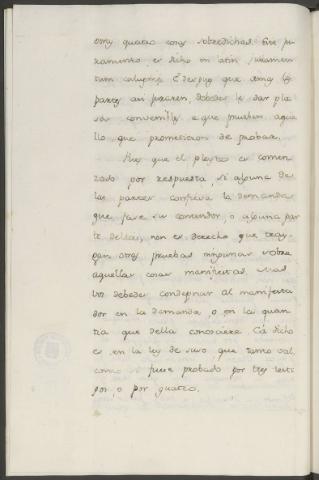 otras quatro cosas sobredichas. Este ju-
ramento es dicho en latin, iuramen-
tum calupnie. E despues que amas las
partes assi juraren, debedes les dar pla-
zo convenible, a que prueben aque-
llo que prometieron de probar.
Pues que el pleyto es comen-
zado por respuesta, si alguna de
las partes confiesa la demanda
que face su contendor, o alguna par-
te della, non es derecho que tray-
gan otras pruebas ningunas sobre
aquellas cosas manifiestas. Mas
vos debedes condepnar al manifesta-
dor en la demanda, o en la quan-
tia que della conosciere. Ca dicho
es en la ley de suso, que tanto val
como si fuese probado por tres testi-
gos, o por quatro.